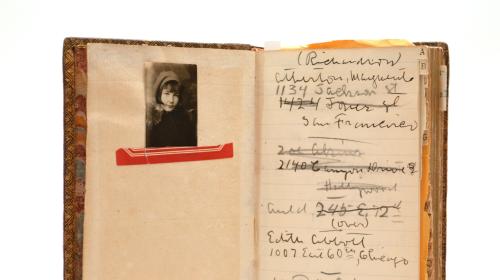 (Richardson)
Atherton, Marguerite
1134 Jackson St
1424 Jones St
San Francisco
Zoe Akins
2140 Canyon Drive
Hollywood
Auld 245 E. 72
(over)
Edith Abbott
1007 East 60th, Chicago
A
B